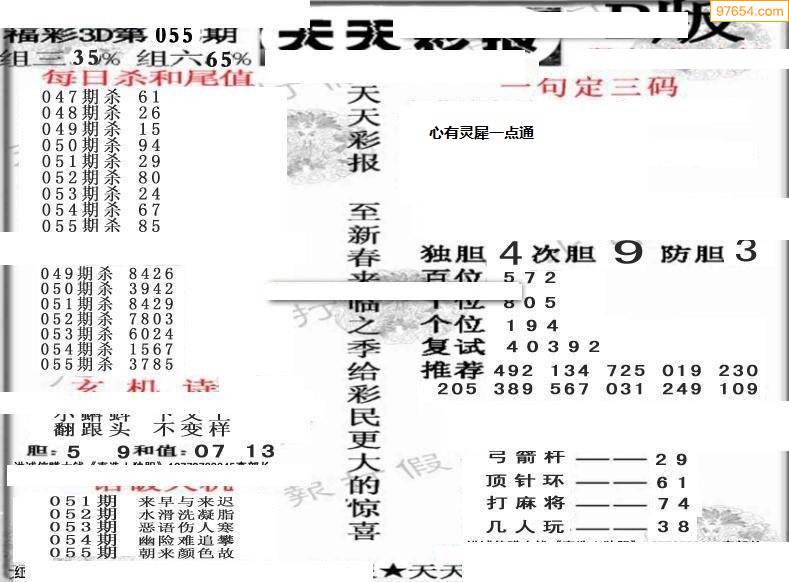 97654.com
福彩3D第055期
天天彩报
版
组三35% 组六65%
每日杀和尾值
047期杀 61
048期杀 26
049期杀 15
050期杀 94
051期杀 29
052期杀 80
053期杀 24
054期杀 67
055期杀 85
049期杀 8426
050期杀 3942
051期杀 8429
052期杀 7803
053期杀 6024
054期杀 1567
055期杀 3785
玄机诗
翻跟头 不变样
胆:5 9和值:07 13
051期 来早与来迟
052期 水滑洗凝脂
053期 恶语伤人寒
054期 幽险难追攀
055期 朝来颜色故
天天彩报 至新春来临之季给彩民更大的惊喜
一句定三码
心有灵犀一点通
独胆4次胆9防胆3
百位 572
位 805
个位 194
复试 40392
推荐 492 134 725 019 230
205 389 567 031 249 109
弓箭杆——29
顶针环——61
打麻将——74
几人玩——38
★天天